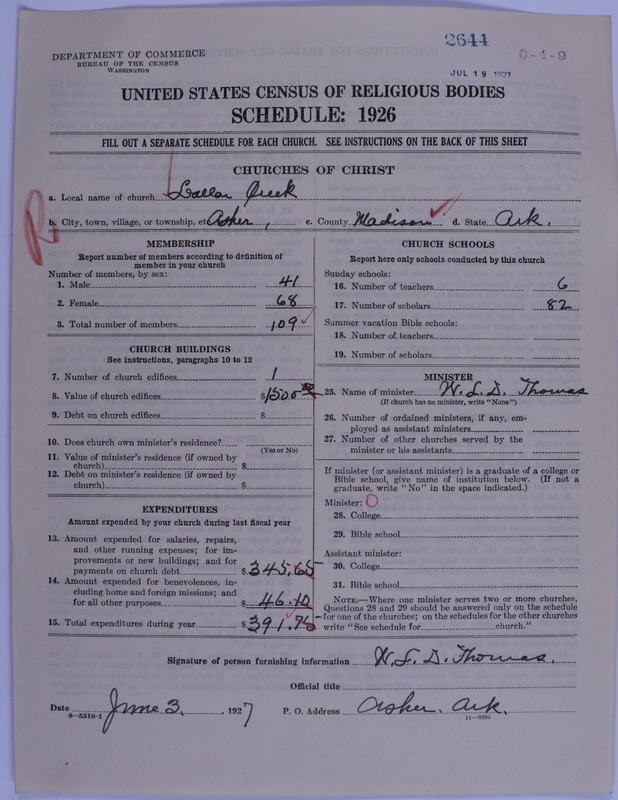 2644
0-4-9
DEPARTMENT OF COMMERCE
BUREAU OF THE CENSUS
WASHINGTON
JUL 19 1927
UNITED STATES CENSUS OF RELIGIOUS BODIES
SCHEDULE: 1926
FILL OUT A SEPARATE SCHEDULE FOR EACH CHURCH. SEE INSTRUCTIONS ON THE BACK OF THIS SHEET
CHURCHES OF CHRIST
a. Local name of church Creek
b. City, town, village, or township, etc Asher, c. County Madison d. State Ark.
R
MEMBERSHIP
Report number of members according to definition of
member in your church
Number of members, by sex:
1. Male 41
2. Female 68
3. Total number of members 109
CHURCH BUILDINGS
See instructions, paragraphs 10 to 12
7. Number of church edifices 1
8. Value of church edifices $1500 00
9. Debt on church edifices $
10. Does church own minister's residence?
(Yes or No)
11. Value of minister's residence (if owned by
church) $
12. Debt on minister's residence (if owned by
church) $
EXPENDITURES
Amount expended by your church during last fiscal year
13. Amount expended for salaries, repairs,
and other running expenses; for im-
provements or new buildings; and for
payments on church debt $345.65
14. Amount expended for benevolences, in-
cluding home and foreign missions; and
for all other purposes $46.10
15. Total expenditures during year $391.75
CHURCH SCHOOLS
Report here only schools conducted by this church
Sunday schools:
16. Number of teachers 6
17. Number of scholars 82
Summer vacation Bible schools:
18. Number of teachers
19. Number of scholars
MINISTER
25. Name of minister W. L. D. Thomas
(If church has no minister, write "None")
26. Number of ordained ministers, if any, em-
ployed as assistant ministers
27. Number of other churches served by the
minister or his assistants
If minister (or assistant minister) is a graduate of a college or
Bible school, give name of institution below. (If not a
graduate, write "No" in the space indicated.)
Minister: O
28. College
29. Bible school
Assistant minister:
30. College
31. Bible school
NOTE.—Where one minister serves two or more churches,
Questions 28 and 29 should be answered only on the schedule
for one of the churches; on the schedules for the other churches
write "See schedule for church."
Signature of person furnishing information W. L. D. Thomas.
Official title
Date June 3, 1927 P. O. Address Asher. Ark.
8—5518-1 11—9204